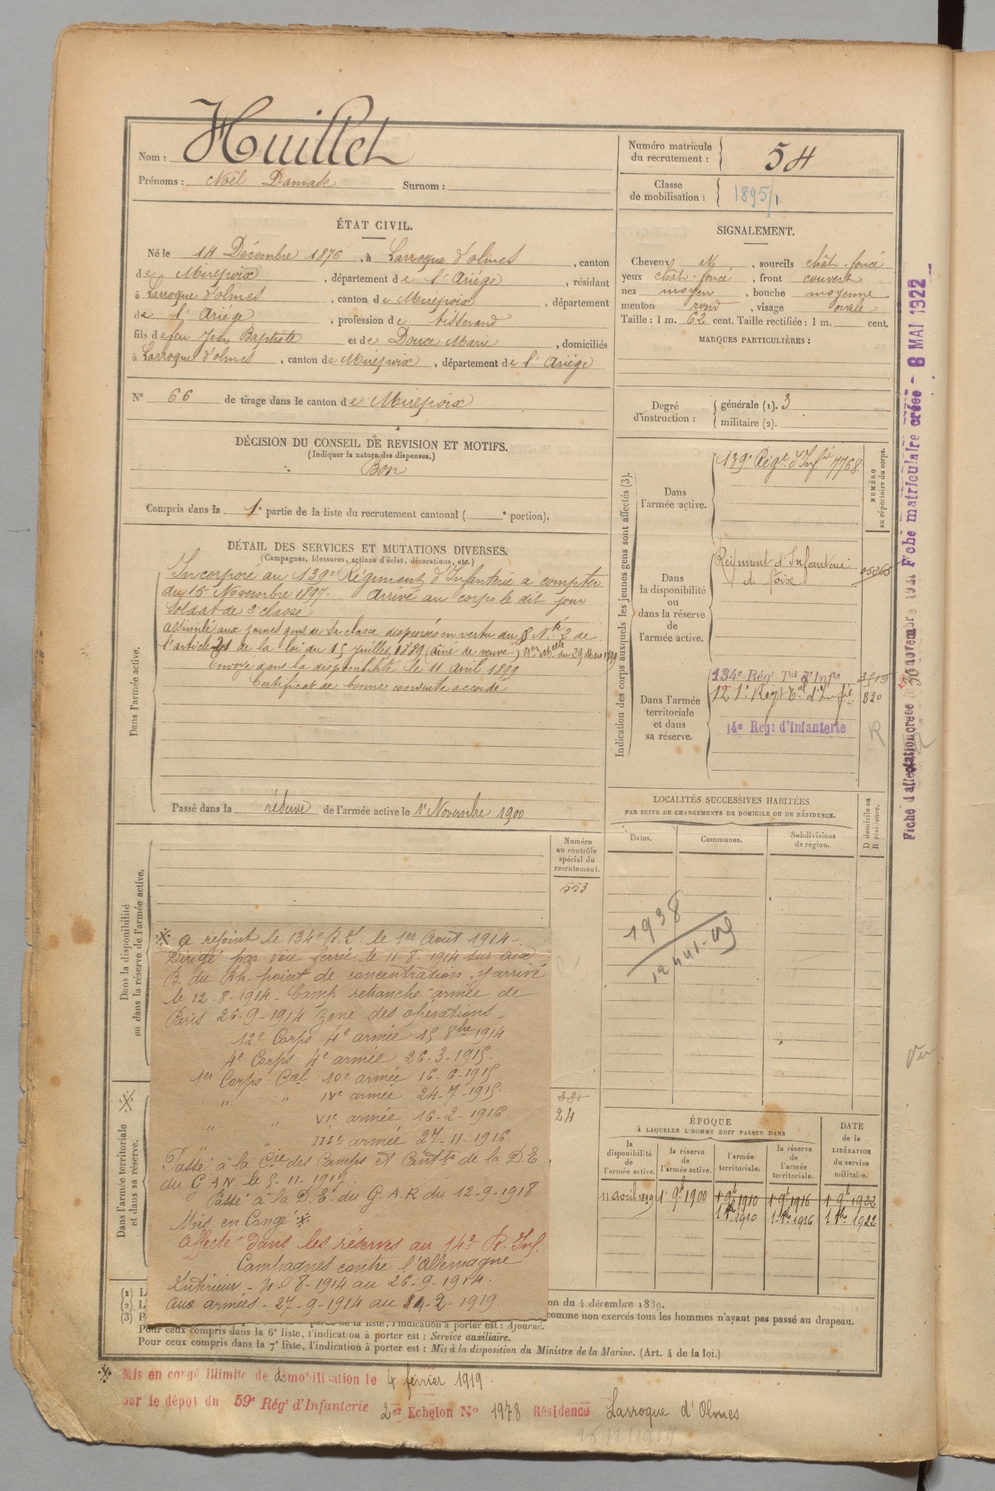 Nom : Huillet
Prénoms : Noël Surnom :
Numéro matricule du recrutement : 54
Classe de mobilisation : 1895/1
ÉTAT CIVIL.
Né le 14 Décembre 1876, à Larroque d'olmes, canton
de Mirepoix, département de l'Ariége, résidant
à Larroque d'olmes, canton de Mirepoix, département
de l'Ariège, profession de tisserand
fils de feu Jean Baptiste et de Douce Marie, domiciliés
à Larroque d'olmes, canton de Mirepoix, département de l'Ariége
N° 66 de tirage dans le canton de Mirepoix
SIGNALEMENT.
Cheveux N, sourcils chât-foncé
yeux chât-foncé, front couvert
nez moyen, bouche moyenne
menton rond, visage ovale
Taille : 1 m. 62 cent. Taille rectifiée : 1 m. cent.
MARQUES PARTICULIÈRES :
Degré d'instruction : générale (1). 3
militaire (2).
DÉCISION DU CONSEIL DE REVISION ET MOTIFS.
(Indiquer la nature des dispenses.)
Bon
Compris dans la 1e partie de la liste du recrutement cantonal ( e portion).
DÉTAIL DES SERVICES ET MUTATIONS DIVERSES.
(Campagnes, blessures, actions d'éclat, décorations, etc.)
Dans l'armée active.
Incorporé au 139e Régiment d'Infanterie à compter
du 15 Novembre 1897. Arrivé au corps le dit jour
Soldat de 2e classe.
Assimilé aux jeunes gens de sa classe dispensés en vertu du § N° 2 de
l'article 21 de la loi du 15 juillet 1889 (ainé de veuve) du 29 Mars 1899
Envoyé dans la disponibilité le 11 avril 1899
Certificat de bonne conduite accordé
Passé dans la réserve de l'armée active le 1er Novembre 1900
Indication des corps auxquels les jeunes gens sont affectés (3).
NUMÉRO au répertoire du corps.
Dans l'armée active.
139e Régt d'Infie 7768
Dans la disponibilité ou dans la réserve de l'armée active.
Régiment d'Infanterie
de Foix
Dans l'armée territoriale et dans sa réserve.
134e Régt Tal d'Infie
121e Régt Tal d'Infie 820
14e Regt d'Infanterie
R
Fiche d'affectation créée 30 novembre 1921 Fiche matriculaire créée - 8 MAI 1922
LOCALITÉS SUCCESSIVES HABITÉES
PAR SUITE DE CHANGEMENTS DE DOMICILE OU DE RÉSIDENCE.
Dates. Communes. Subdivisions de région. D domicile ou R résidence.
1938
Dans la disponibilité ou dans la réserve de l'armée active.
Numéro au contrôle spécial du recrutement.
553
24
Dans l'armée territoriale et dans sa réserve.
※ a rejoint le 134e R.I. le 1er Août 1914-
Dirigé par voie ferrée le 11-8-1914 sur Aix
B. du Rh. point de concentration, y arrivé
le 12-8-1914. Camp retranché armée de
Paris 26-9-1914 zone des opérations-
12e Corps 4e armée 15 8bre 1914
4e Corps 4e armée 26-3-1915.
1er Corps Cal 10e armée 16-6-1915
" " IVe armée 24-7-1915.
" " VIe armée 16-2-1916.
" " IIIe armée 27-11-1916.
Passé à la Cie des Camps et Cantts de la D.E.
du G A N le 5-11-1917.
Passé à la D.E. du G.A.R du 12-9-1918
Mis en Congé ※
Affecté dans les réserves au 14e R. Inf.
Campagnes contre l'Allemagne
Intérieur - 4-8-1914 au 26-9-1914.
Aux armées - 27-9-1914 au -2-1919
ÉPOQUE
À LAQUELLE L'HOMME DOIT PASSER DANS
la disponibilité de l'armée active. la réserve de l'armée active. l'armée territoriale. la réserve de l'armée territoriale. DATE de la LIBÉRATION du service militaire.
11 avril 1899 1er 9bre 1900 1er 9bre 1910 1er 9bre 1916 1er 9bre 1922
1910 1916 1922
(1) L
(2) L on du 4 décembre 1889.
(3) P comme non exercés tous les hommes n'ayant pas passé au drapeau.
partie de la liste, l'indication à porter est : Ajourné.
Pour ceux compris dans la 6e liste, l'indication à porter est : Service auxiliaire.
Pour ceux compris dans la 7e liste, l'indication à porter est : Mis à la disposition du Ministre de la Marine. (Art. 4 de la loi.)
※ Mis en congé illimité de démobilisation le 4 février 1919.
par le dépot du 59e Régt d'Infanterie 2e Echelon N° 1978 Résidence Larroque d'Olmes